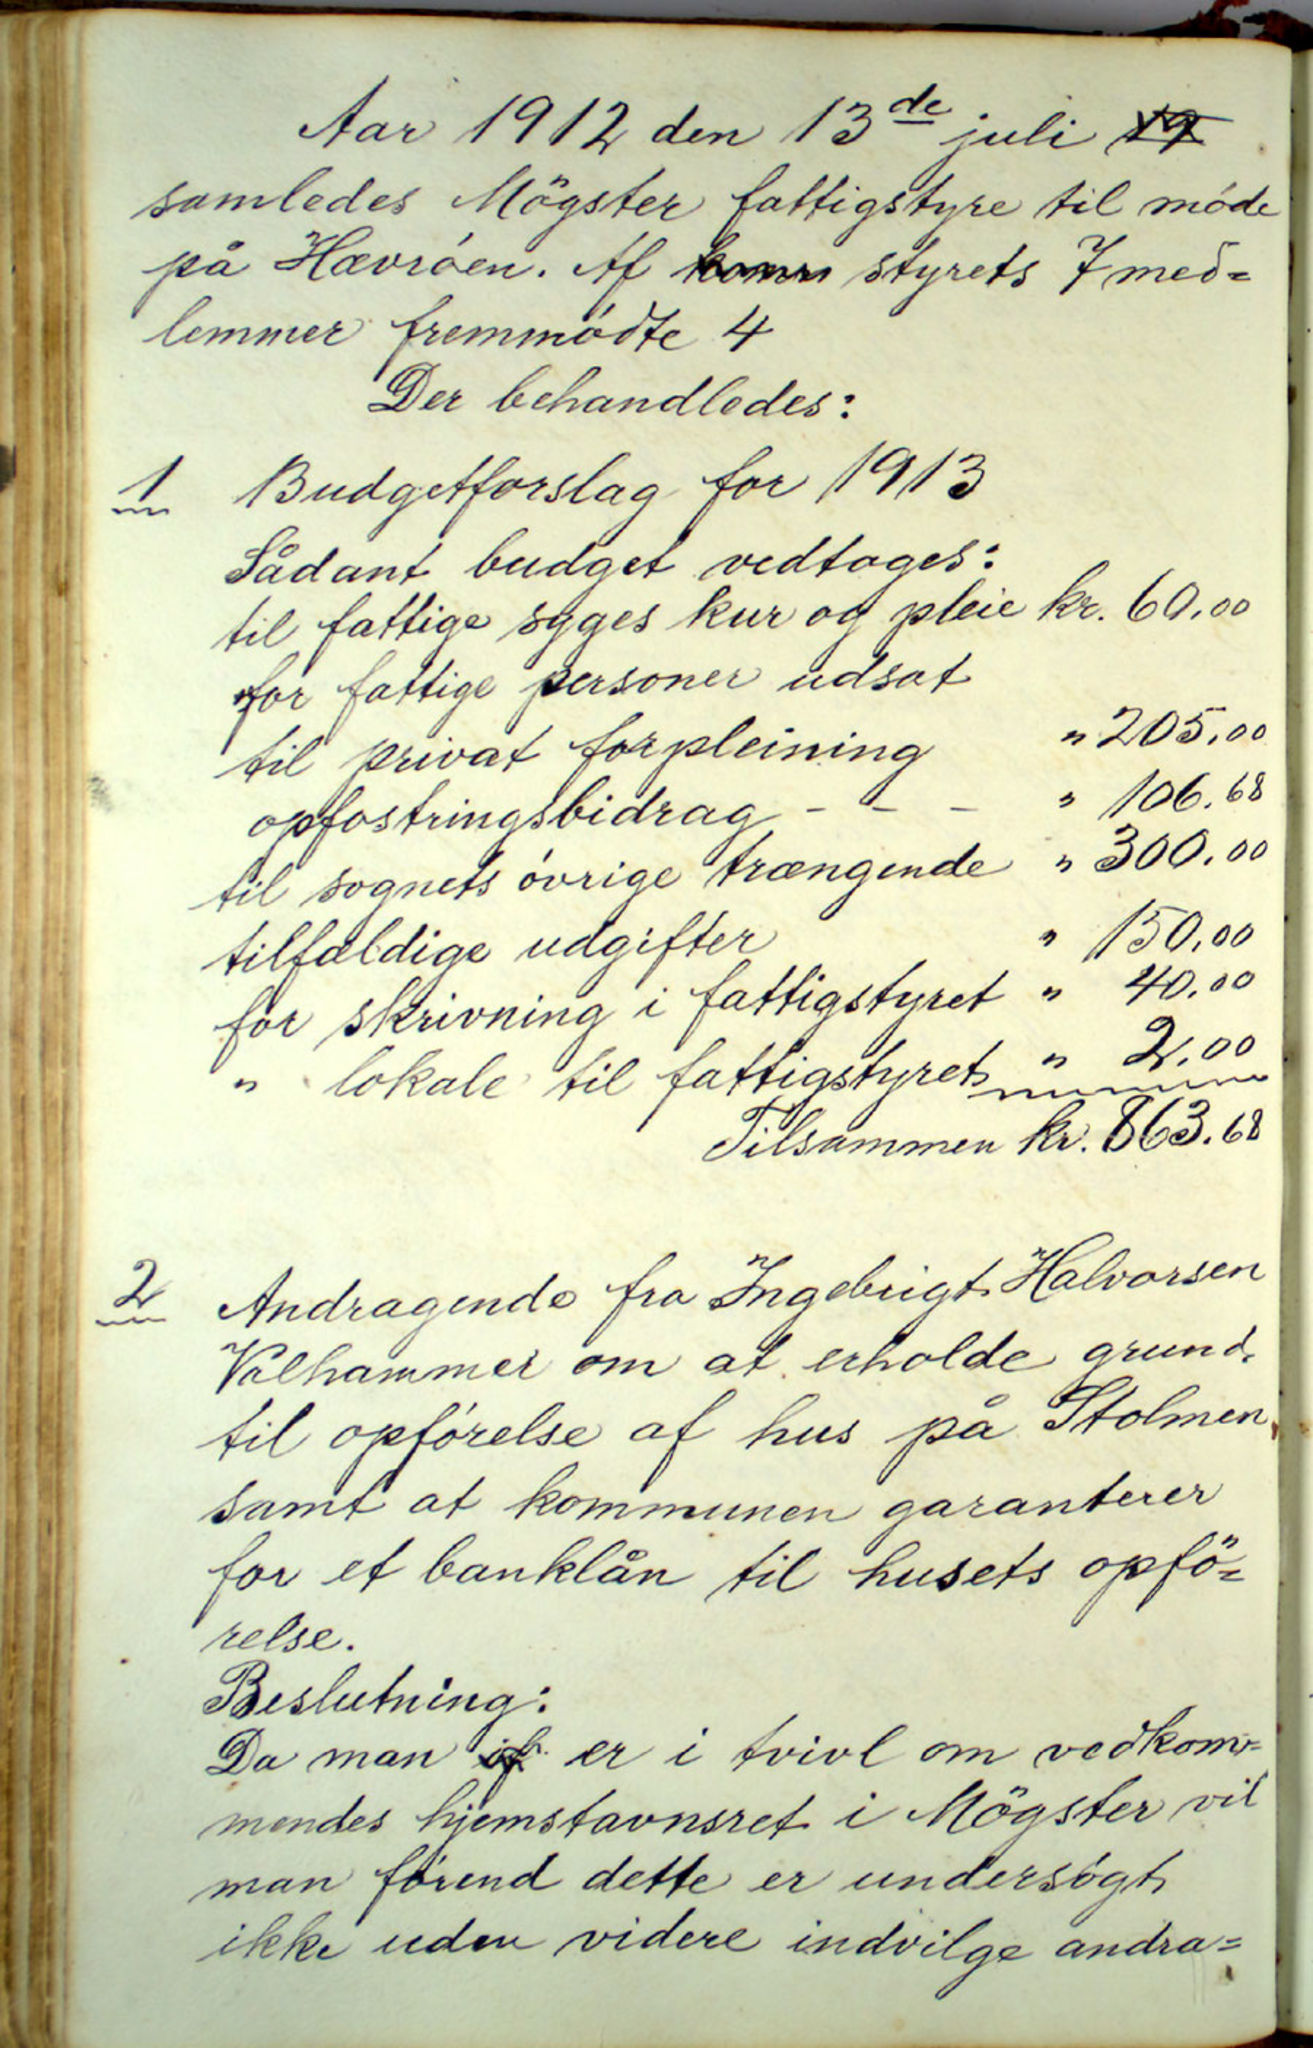 Aar 1912 den 13de juli 19
samledes Mögster fattigstyre til móde
på Hævróen. Af komm styrets 7 med=
lemmer fremmódte 4
Der behandledes:
1 Budgetforslag for 1913
Sådant budget vedtages:
til fattige syges kur og pleie kr. 60.00
for fattige personer udsat
til privat forpleining " 205.00
opfostringsbidrag - - - " 106.68
til sognets óvrige trængende " 300.00
tilfældige udgifter " 150.00
for skrivning i fattigstyret " 40.00
" lokale til fattigstyret " 2.00
Tilsammen kr. 863.68
2 Andragende fra Ingebrigt Halvorsen
Valhammer om at erholde grund
til opfórelse af hus på Stolmen,
samt at kommunen garanterer
for et banklån til husets opfö=
relse.
Beslutning:
Da man er i tvivl om vedkom=
mendes hjemstavnsret i Mögster vil
man fórend dette er undersógt
ikke uden videre indvilge andra=